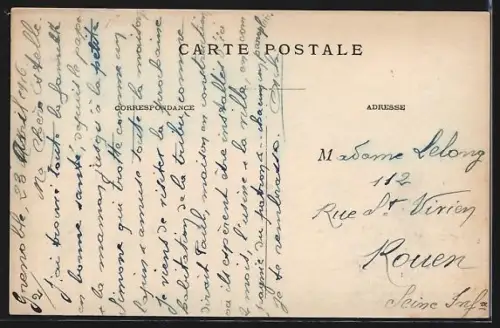 CARTE POSTALE
CORRESPONDANCE
ADRESSE
Grenoble, 23 Avril
Ma chère Estelle
J'ai trouvé toute la famille
en bonne santé, depuis le papa
et la maman jusqu'à la petite
Simone qui trotte comme un
lapin & amuse toute la maison.
Je viens de visiter la prochaine
habitation de la tribu, comme
dirait Paul, maison en construction
où ils espèrent être installés dici
2 mois, l'usine & la ville, en com
pagnie du patron &
Je t'embrasse
Madame Lelong
112
Rue St Vivien
Rouen
Seine Infre